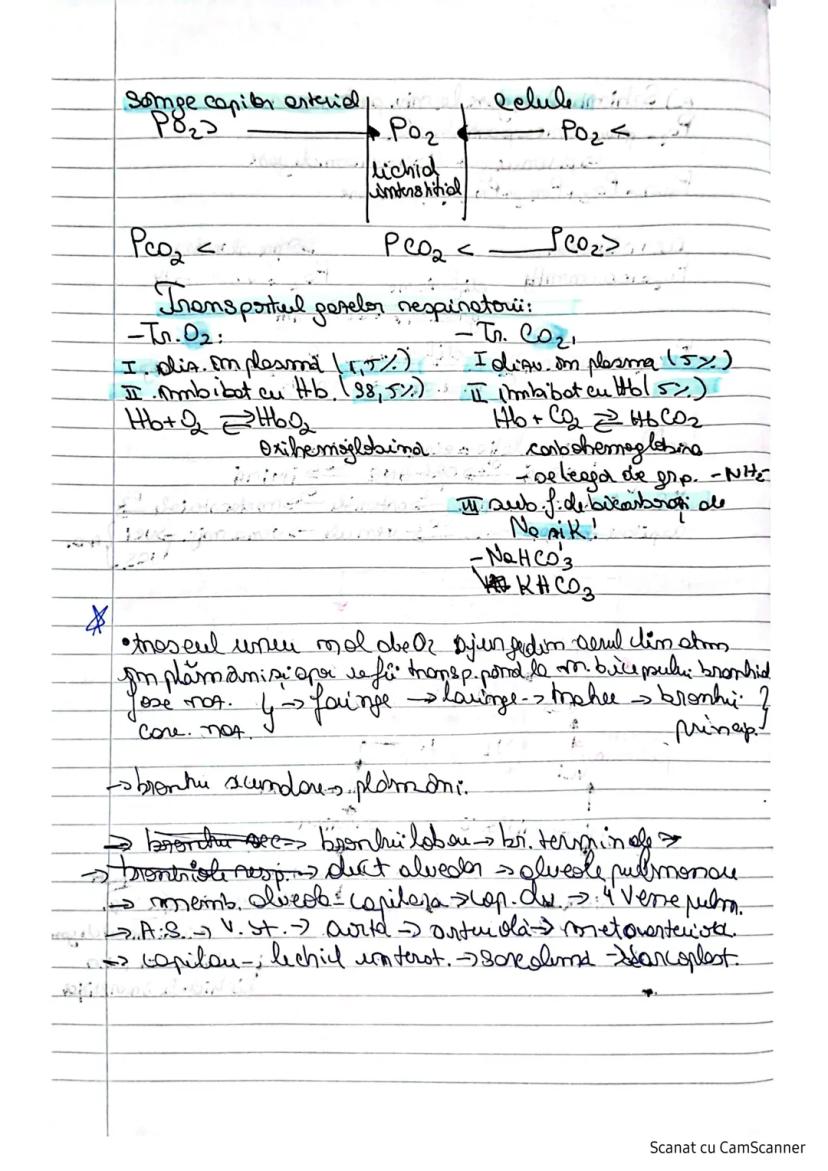 Sânge capilar arterial celule
PO₂> → PO₂ ← PO₂<
lichid
interstițial
PCO₂ < PCO₂ < PCO₂>
Transportul gazelor respiratorii:
-Tr. O₂: - Tr. CO₂,
I. diz. în plasmă (1,5%) I dizv. în plasma (5%)
II. îmbibat cu Hb. (98,5%) II îmbibat cu Hb( 5%)
Hb+O₂ ⇄ HbO₂ Hb + CO₂ ⇄ HbCO₂
oxihemoglobina carbohemoglobina
- se leagă de grp. -NH₂
III sub. f. de bicarbonați de
Na și K!
-NaHCO₃
KHCO₃
•traseul unui mol de O₂ ajunge din aerul din atm
în plămâni și apoi transp. până la m. bicepsului brahial
fose naz. → faringe → laringe → trahee → bronhii
coa. naz. princip.
→ bronhii secundare → plămâni.
→ bronhii sec → bronhii lobare → br. terminale →
→ bronhiole resp. → duct alveolar → alveole pulmonare
→ memb. alveolo-capilara → cap. → 4 Vene pulm.
→ A.S. → V. St. → aorta → arteriolă → metaarteriola.
→ capilare → lichid interst. → sarcolema → sarcoplasm.
Scanat cu CamScanner